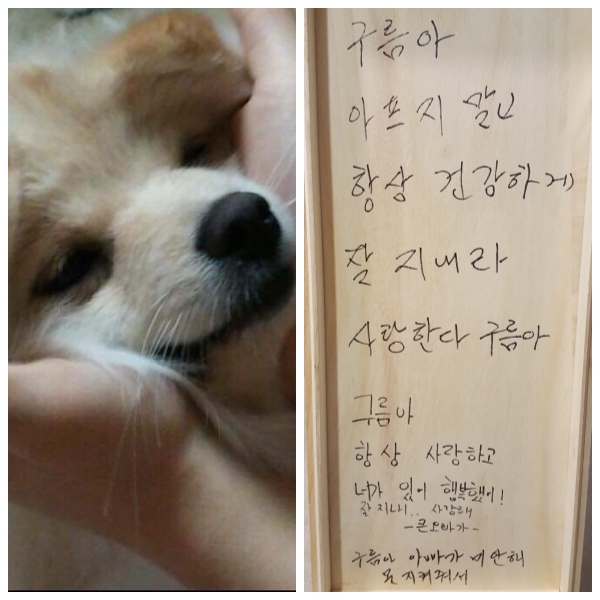 구름아
아프지 말고
항상 건강하게
잘 지내라
사랑한다 구름아
구름아
항상 사랑하고
너가 있어 행복했어!
잘 지내.. 사랑해
-큰오빠가-
구름아 아빠가 미안해
못 지켜줘서